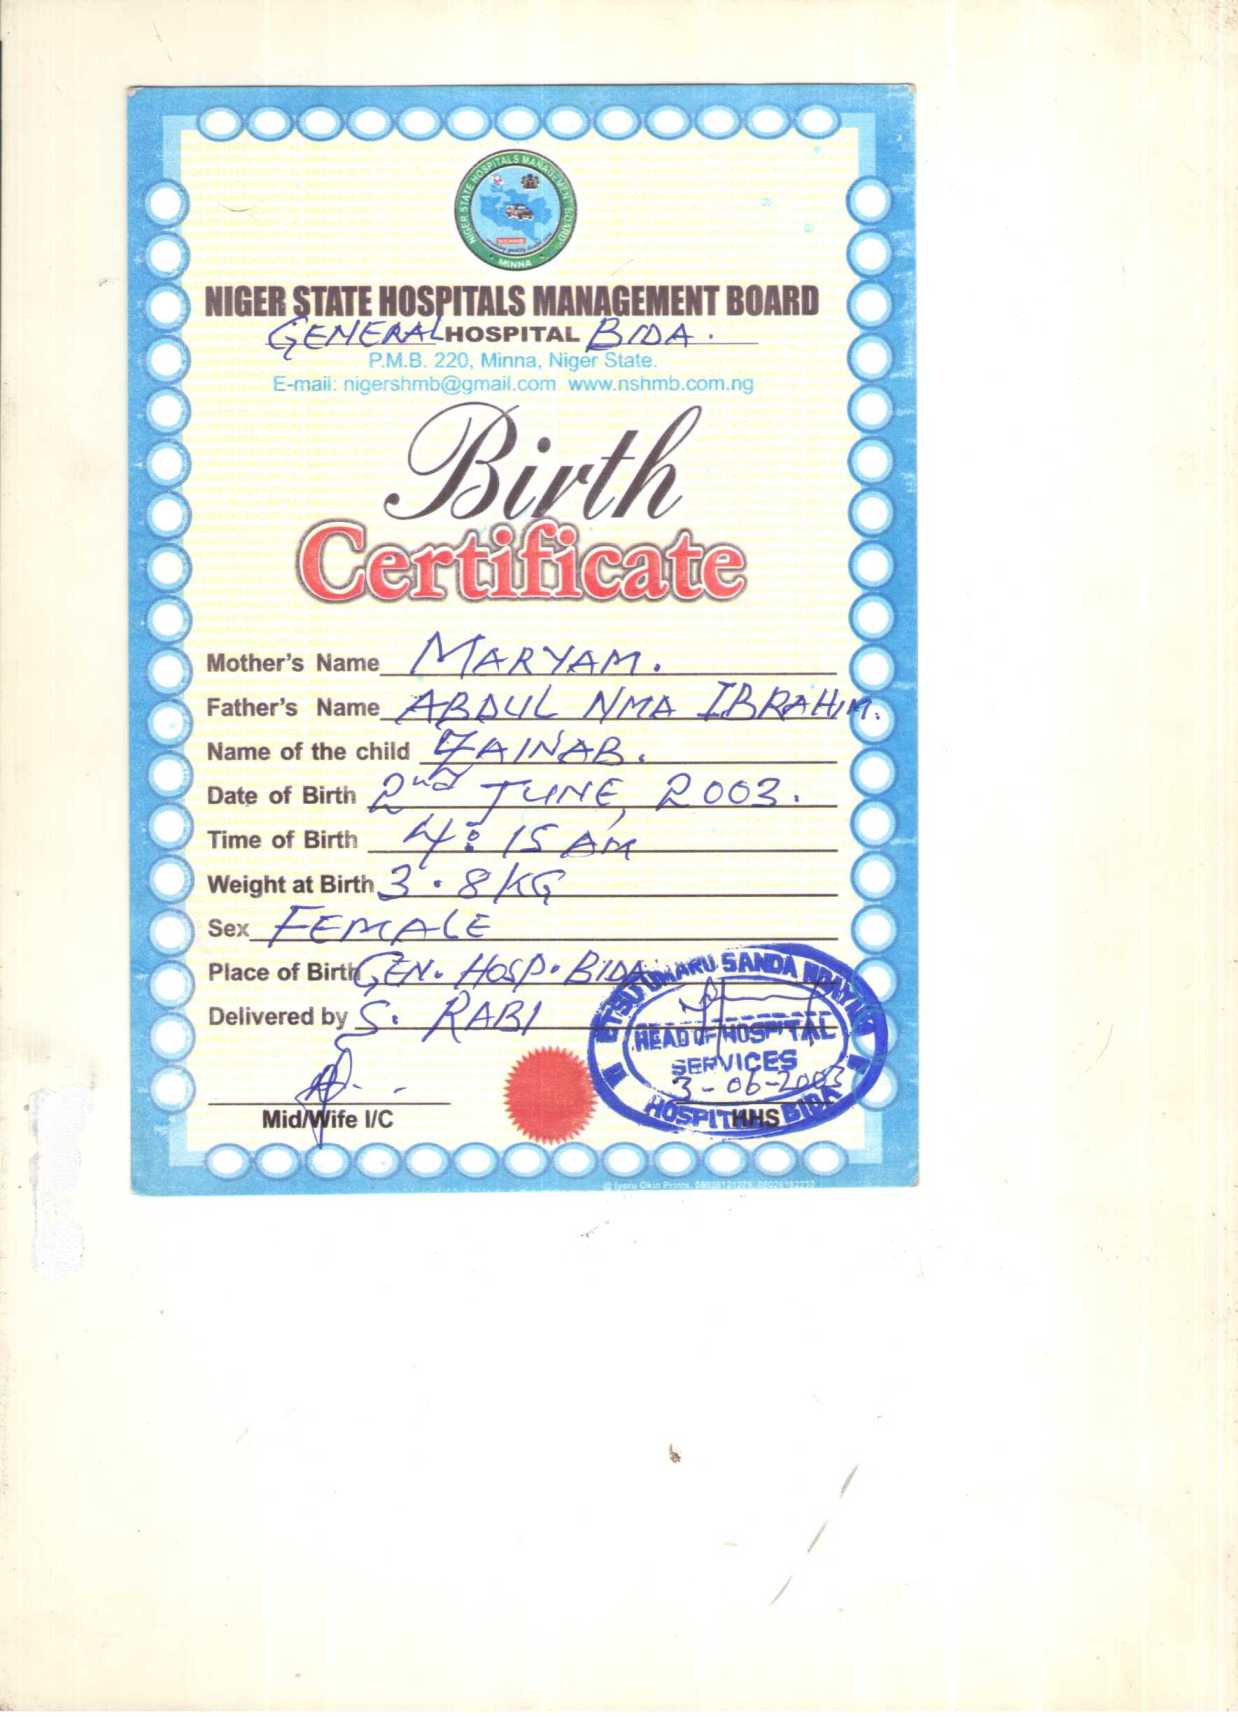 NIGER STATE HOSPITALS MANAGEMENT BOARD
MINNA
NIGER STATE HOSPITALS MANAGEMENT BOARD
GENERAL HOSPITAL BIDA.
P.M.B. 220, Minna, Niger State.
E-mail: nigershmb@gmail.com www.nshmb.com.ng
Birth
Certificate
Mother's Name MARYAM.
Father's Name ABDUL NMA IBRAHIM.
Name of the child ZAINAB.
Date of Birth 2nd JUNE, 2003.
Time of Birth 4:15 AM
Weight at Birth 3.8KG
Sex FEMALE
Place of Birth GEN. HOSP. BIDA
Delivered by S. RABI
UMARU SANDA
HEAD OF HOSPITAL
SERVICES
3-06-2003
HOSPITAL BIDA
Mid/Wife I/C HHS